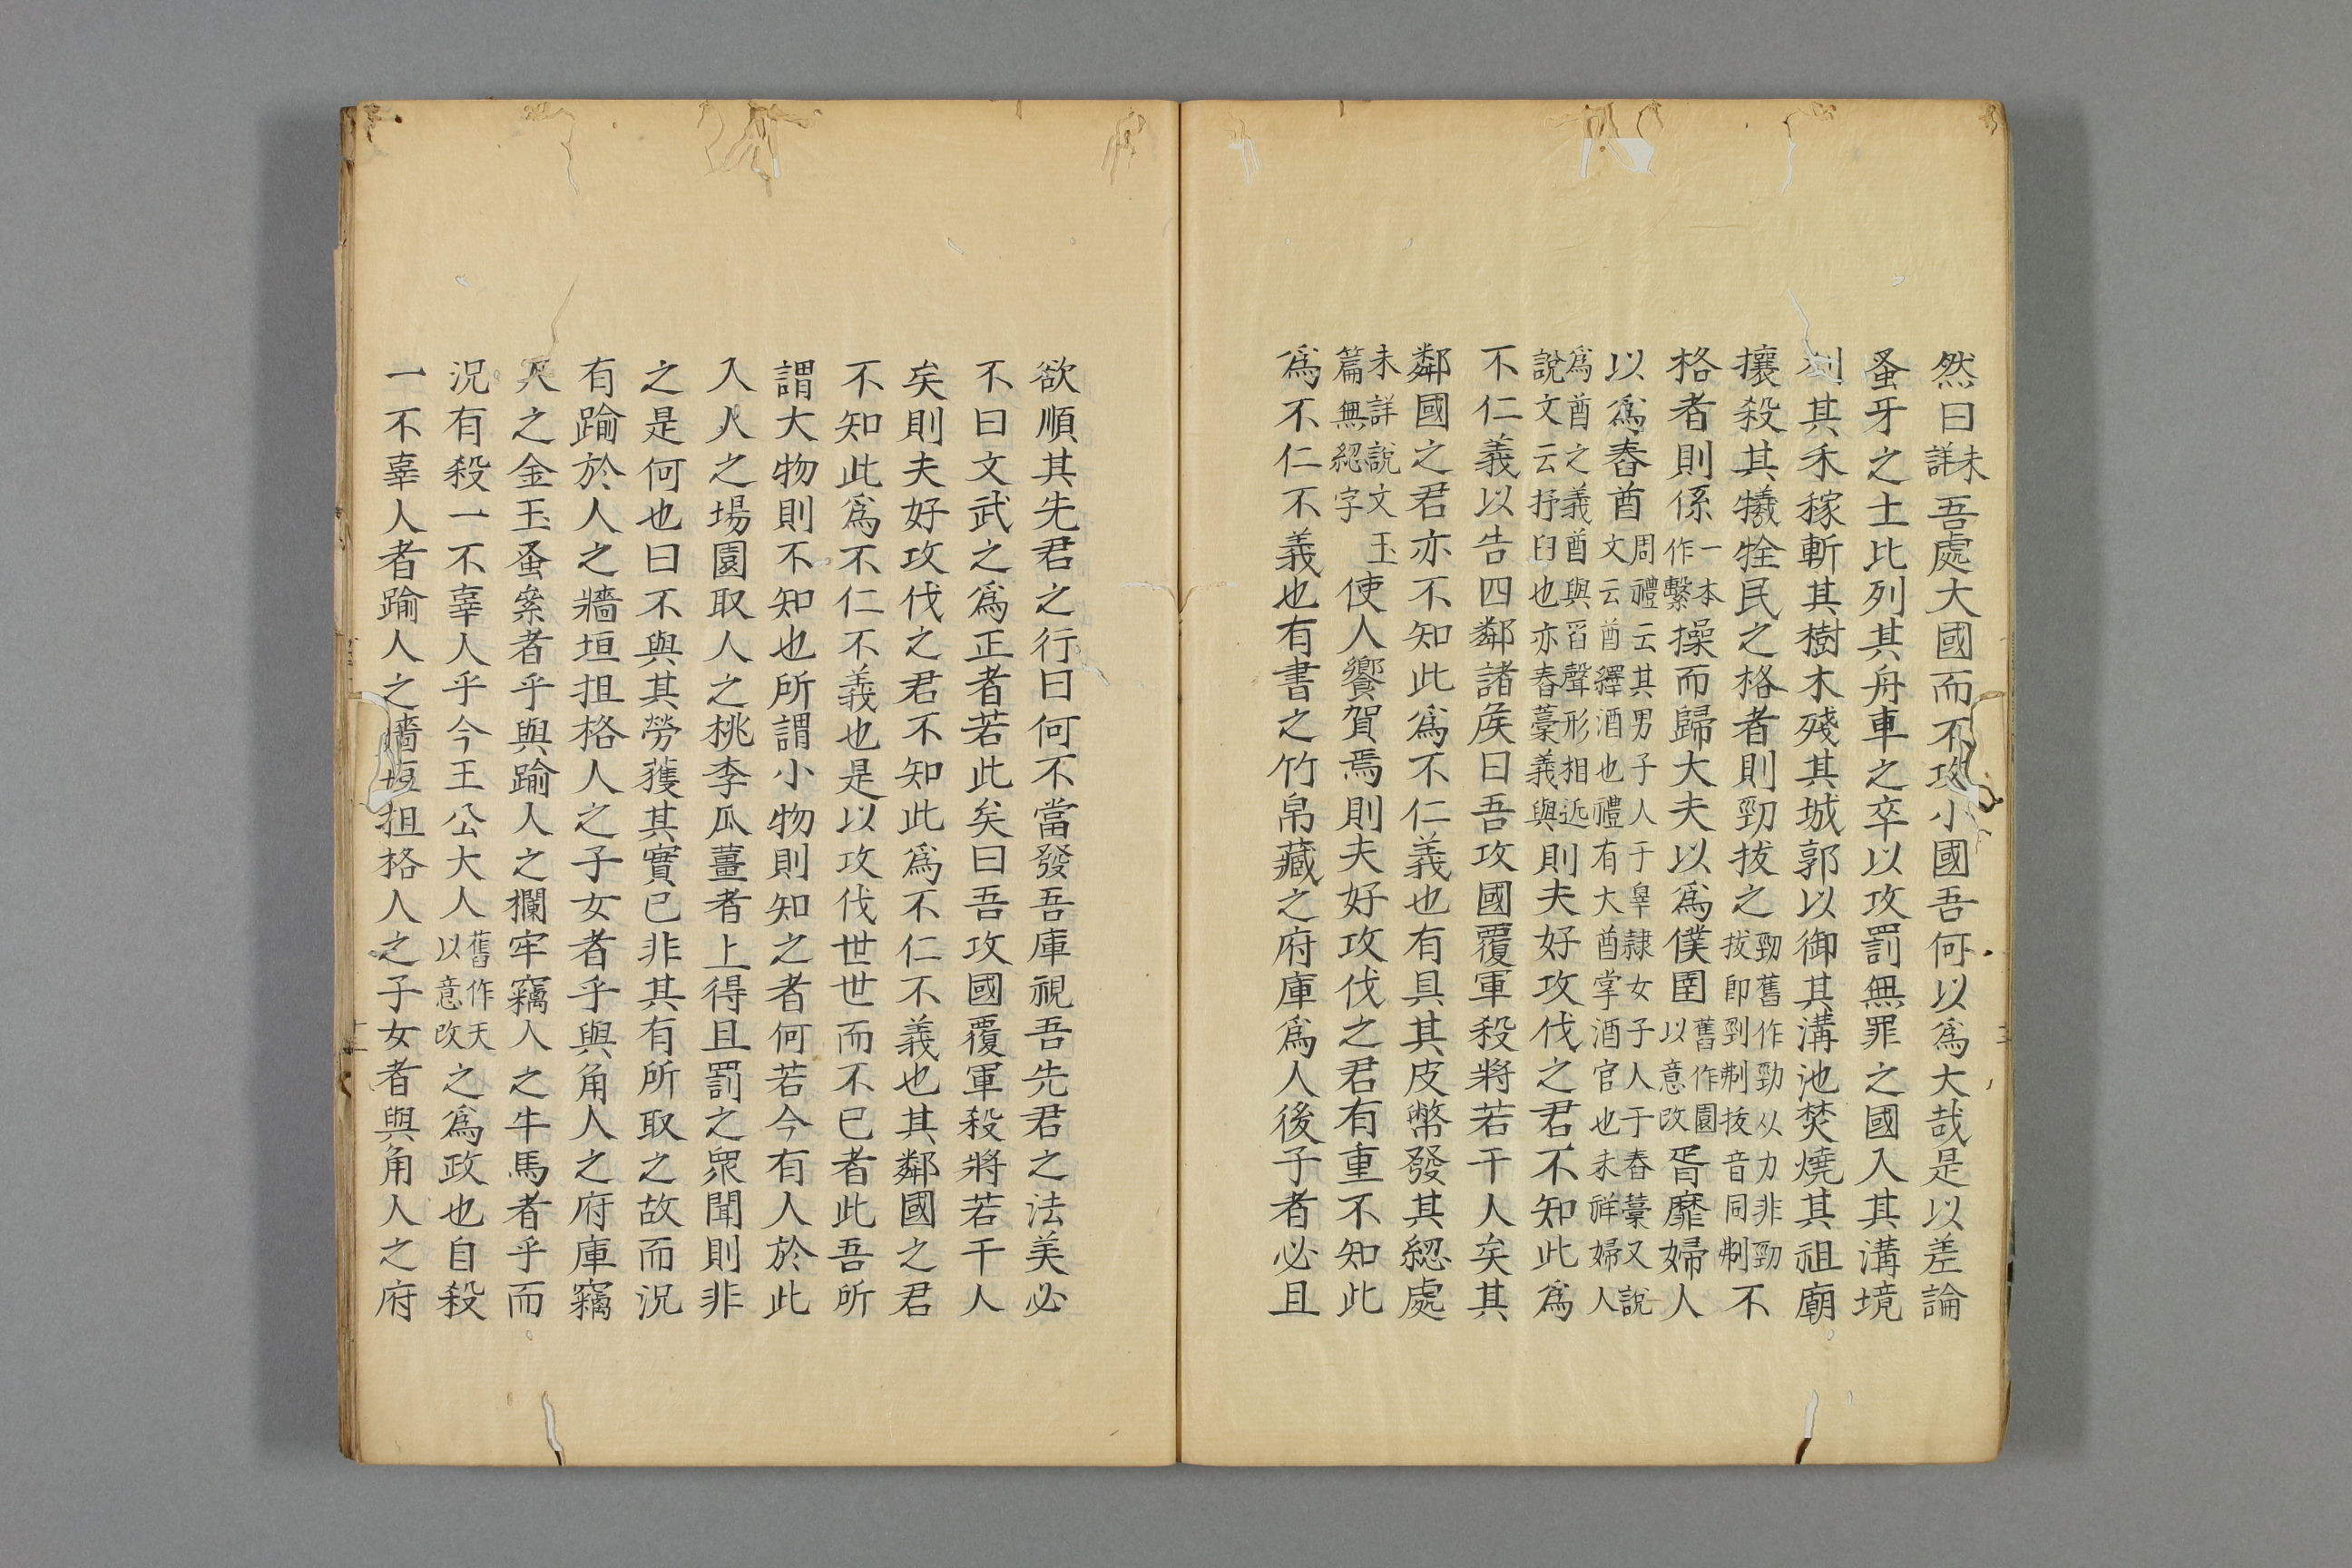 然曰未詳吾處大國而不攻小國吾何以爲大哉是以差論
蚤牙之士比列其舟車之卒以攻罰無罪之國入其溝境
刈其禾稼斬其樹木殘其城郭以御其溝池焚燒其祖廟
攘殺其犧牷民之格者則勁拔之勁舊作勁从力非勁拔即剄㓨拔音同㓨不
格者則係一本作繫操而歸大夫以爲僕圉舊作園以意改胥靡婦人
以爲舂酋周禮云其男子人于辠隷女子人于舂藁又說文云酋繹酒也禮有大酋掌酒官也未詳婦人
爲酋之義酋與舀聲形相近說文云抒臼也亦舂藁義與則夫好攻伐之君不知此爲
不仁義以告四鄰諸侯曰吾攻國覆軍殺將若干人矣其
鄰國之君亦不知此爲不仁義也有具其皮幣發其綛處
未詳說文玉篇無綛字使人饗賀焉則夫好攻伐之君有重不知此
爲不仁不義也有書之竹帛藏之府庫爲人後子者必且
欲順其先君之行曰何不當發吾庫視吾先君之法美必
不曰文武之爲正者若此矣曰吾攻國覆軍殺將若干人
矣則夫好攻伐之君不知此爲不仁不義也其鄰國之君
不知此爲不仁不義也是以攻伐世世而不已者此吾所
謂大物則不知也所謂小物則知之者何若今有人於此
入人之場園取人之桃李瓜薑者上得且罰之眾聞則非
之是何也曰不與其勞獲其實已非其有所取之故而況
有踰於人之牆垣抯格人之子女者乎與角人之府庫竊
人之金玉蚤絫者乎與踰人之欄牢竊人之牛馬者乎而
況有殺一不辜人乎今王公大人舊作天以意改之爲政也自殺
一不辜人者踰人之牆垣抯格人之子女者與角人之府